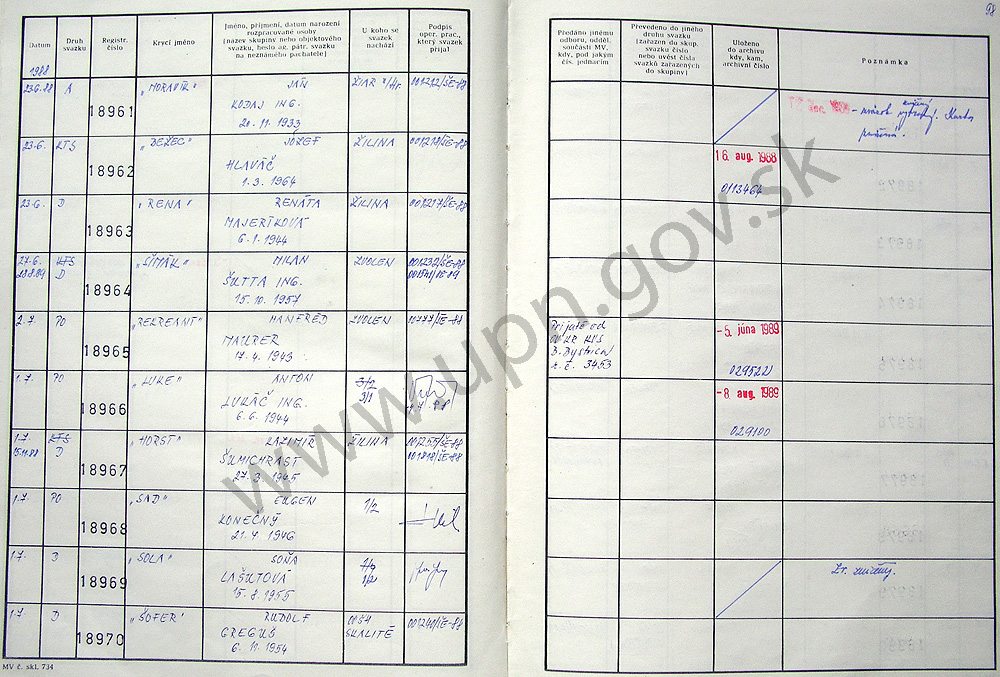 98
Datum
Druh svazku
Registr. číslo
Krycí jméno
Jméno, příjmení, datum narození rozpracované osoby [název skupiny nebo objektového svazku, heslo ag. pátr. svazku na neznámého pachatele]
U koho se svazek nachází
Podpis oper. prac., který svazek přijal
Předáno jinému odboru, odděl. součásti MV, kdy, pod jakým čís. jednacím
Převedeno do jiného druhu svazku [zařazen do skup. svazku číslo nebo uvést čísla svazků zařazených do skupiny]
Uloženo do archivu kdy, kam, archivní číslo
Poznámka
1988
23.6.88 A 18961 "MORAVÍK" JÁN
KODAJ ING.
20.11.1933
ŽIAR n/Hr. 001212/ŠE-88
23.6. KTS 18962 "BEŽEC" JOZEF
HLAVÁČ
1.3.1964
ŽILINA 001218/ŠE-88
16. aug. 1988
0113464
23.6. D 18963 "RENA" RENÁTA
MAJERÍKOVÁ
6.1.1944
ŽILINA 001217/ŠE-88
27.6. KTS 18964 "SIMÁK" MILAN
D
ŠUTTA ING.
15.10.1957
ZVOLEN 001232/ŠE-88
2.7. PO 18965 "REKREANT" MANFRED
MAURER
17.4.1943
ZVOLEN 00777/ŠE-88
Prijaté od
B. Bystrica
č. 3453
-5. júna 1989
029522
1.7. PO 18966 "LUKE" ANTON
LUKÁČ ING.
6.6.1944
3/2
3/1
-8. aug. 1989
029100
1.7. KTS 18967 "HORST" KAZIMÍR
15.11.88 D
ŠUMICHRAST
27.3.1945
ŽILINA 001255/ŠE-88
001818/ŠE-88
1.7. PO 18968 "SAD" EUGEN
KONEČNÝ
21.4.1946
1/2
1.7. 18969 "SOLA" SOŇA
LAŠUTOVÁ
15.8.1955
Zv. zničený.
1.7. D 18970 "ŠOFER" RUDOLF
GREGUŠ
6.11.1954
OOŠ4
SKALITÉ
001240/ŠE-88
MV č. skl. 734
www.upn.gov.sk